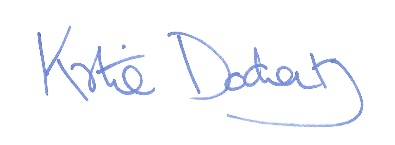 Katie Docherty